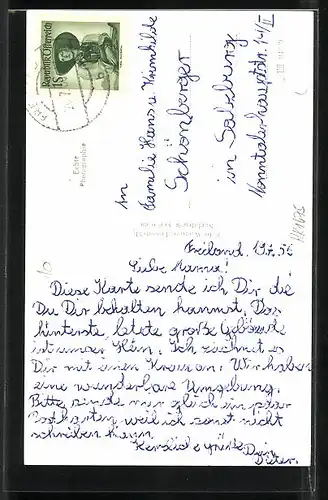 Republik Österreich
An
Familie Hans u. Krimhilde
Schönberger
in Salzburg
Echte
Photographie
Freiland, 19.7.56
Liebe Mama!
Diese Karte sende ich Dir die
Du Dir behalten kannst. Das
hinterste, letzte große Gebäude
ist unser Heim. Ich zeichnet es
Dir mit einen Kreuz an. Wir haben
eine wunderbare Umgebung.
Bitte sende mir gleich ein paar
Postkarten weil ich sonst nicht
schreiben kann.
Herzliche Grüße Dein
Dieter.